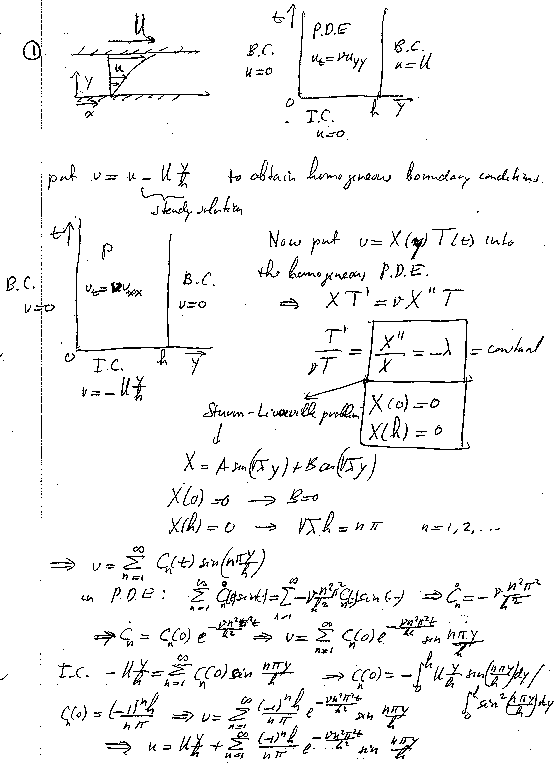 ①
U
u
y
x
t↑
P.D.E
u_t = νu_yy
B.C.
u=0
B.C.
u=U
0
h
y
I.C.
u=0
put v = u - U y/h to obtain homogeneous boundary conditions.
steady solution
t↑
P
v_t = νv_xx
B.C.
v=0
B.C.
v=0
0
I.C.
h
y
v = -U y/h
Now put v = X(y) T(t) into
the homogeneous P.D.E.
⇒ XT' = νX''T
T'/νT = X''/X = -λ = constant
X(0)=0
X(h)=0
Sturm-Liouville problem
X = A sin(√λ y) + B cos(√λ y)
X(0)=0 → B=0
X(h)=0 → √λ h = nπ n=1,2,...
⇒ v = Σ_{n=1}^∞ C_n(t) sin(nπy/h)
in P.D.E: Σ_{n=1}^∞ Ċ_n(t) sin(-) = Σ_{n=1}^∞ -ν n²π²/h² C_n(t) sin(-) ⇒ Ċ_n = -ν n²π²/h²
⇒ C_n = C_n(0) e^{-νn²π²t/h²} ⇒ v = Σ_{n=1}^∞ C_n(0) e^{-νn²π²t/h²} sin nπy/h
I.C. -U y/h = Σ_{n=1}^∞ C_n(0) sin nπy/h ⇒ C_n(0) = -∫_0^h U y/h sin(nπy/h) dy / ∫_0^h sin²(nπy/h) dy
C_n(0) = (-1)^n h/nπ ⇒ v = Σ_{n=1}^∞ (-1)^n h/nπ e^{-νn²π²t/h²} sin nπy/h
⇒ u = U y/h + Σ_{n=1}^∞ (-1)^n h/nπ e^{-νn²π²t/h²} sin nπy/h